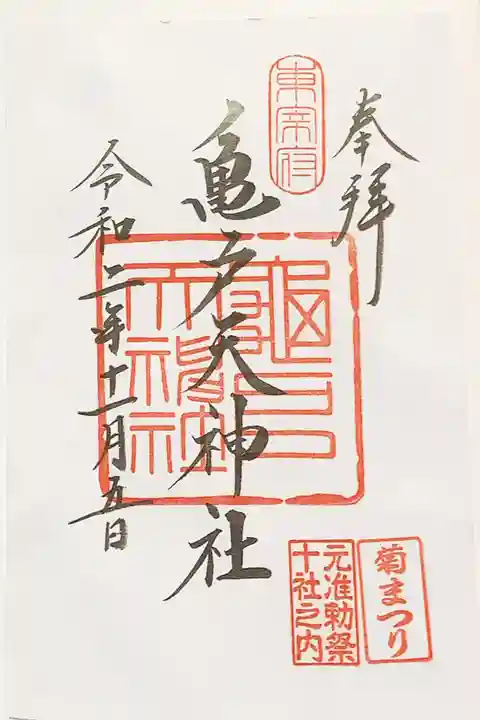 奉拝
東宰府
亀戸天神社
令和二年十一月五日
菊まつり
元准勅祭
十社之内